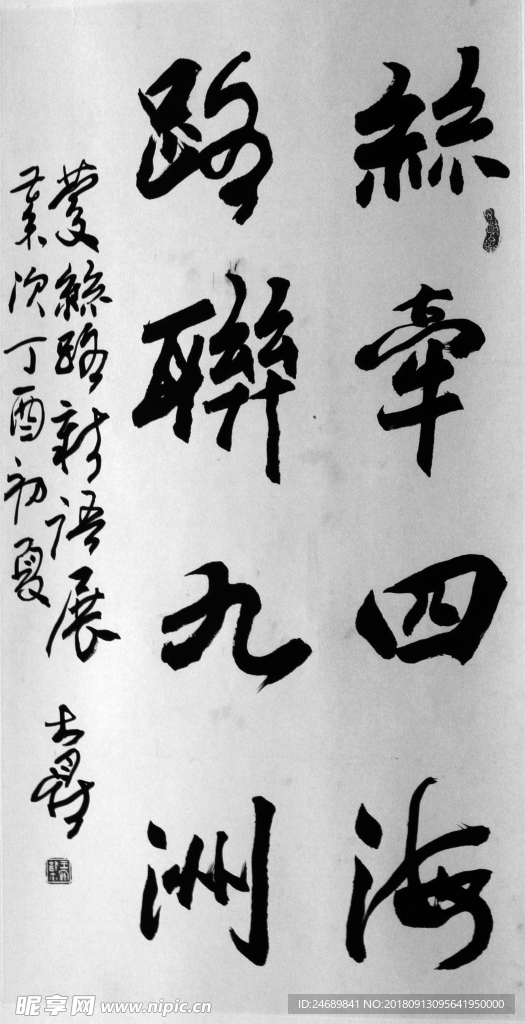 絲牽四海
路聯九洲
絲路新語展
次丁酉初夏
昵享网 www.nipic.cn
ID:24689841 NO:20180913095641950000